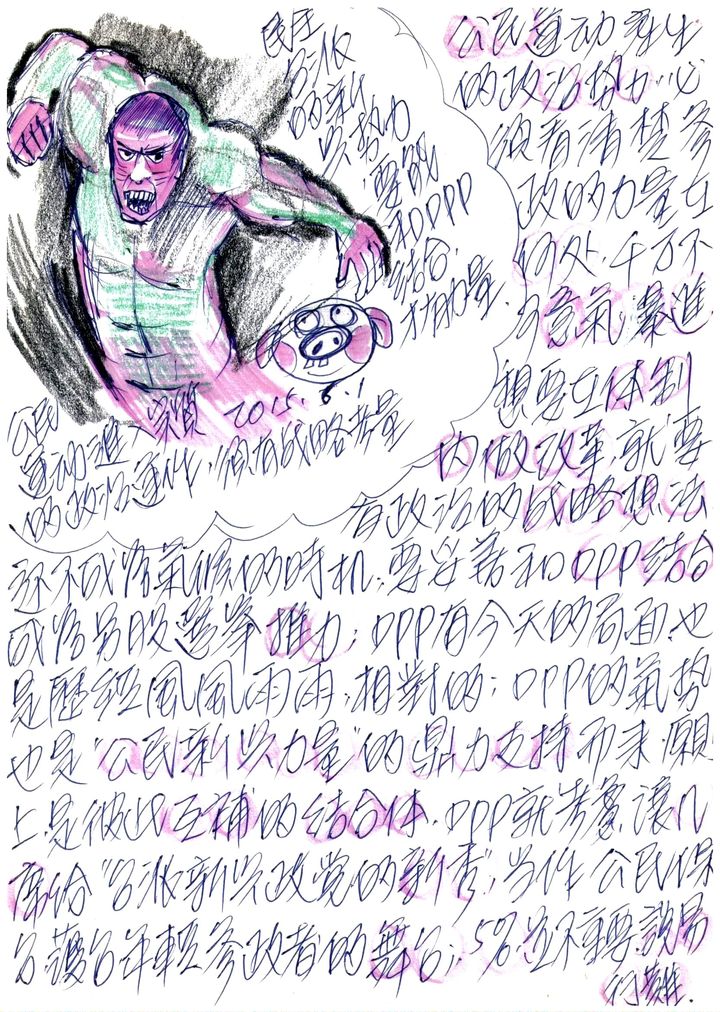 民主
台派
的新
兴势力
要能
和DPP
结合
才有力量.
公民
運动進入实質 2015.1.1
的政治運作,须有战略考量
公民運动產生
的政治势力必
须看清楚参
政的力量在
何处,千万不
可意氣暴進
想要在体制
内做改革,就要
有政治的战略想法
还不成为氣候的时机,要妥善和DPP结合
成为另股選举推力;DPP有今天的局面也
是歷经風風雨雨;相對的;DPP的氣势
也是"公民新兴力量"的鼎力支持而来,
上是彼此互補的结合体,DPP就考慮讓几
席给"台派新兴政党的新秀",当作公民保
台護台年輕参政者的舞台;5%並不重要,說易
行難.